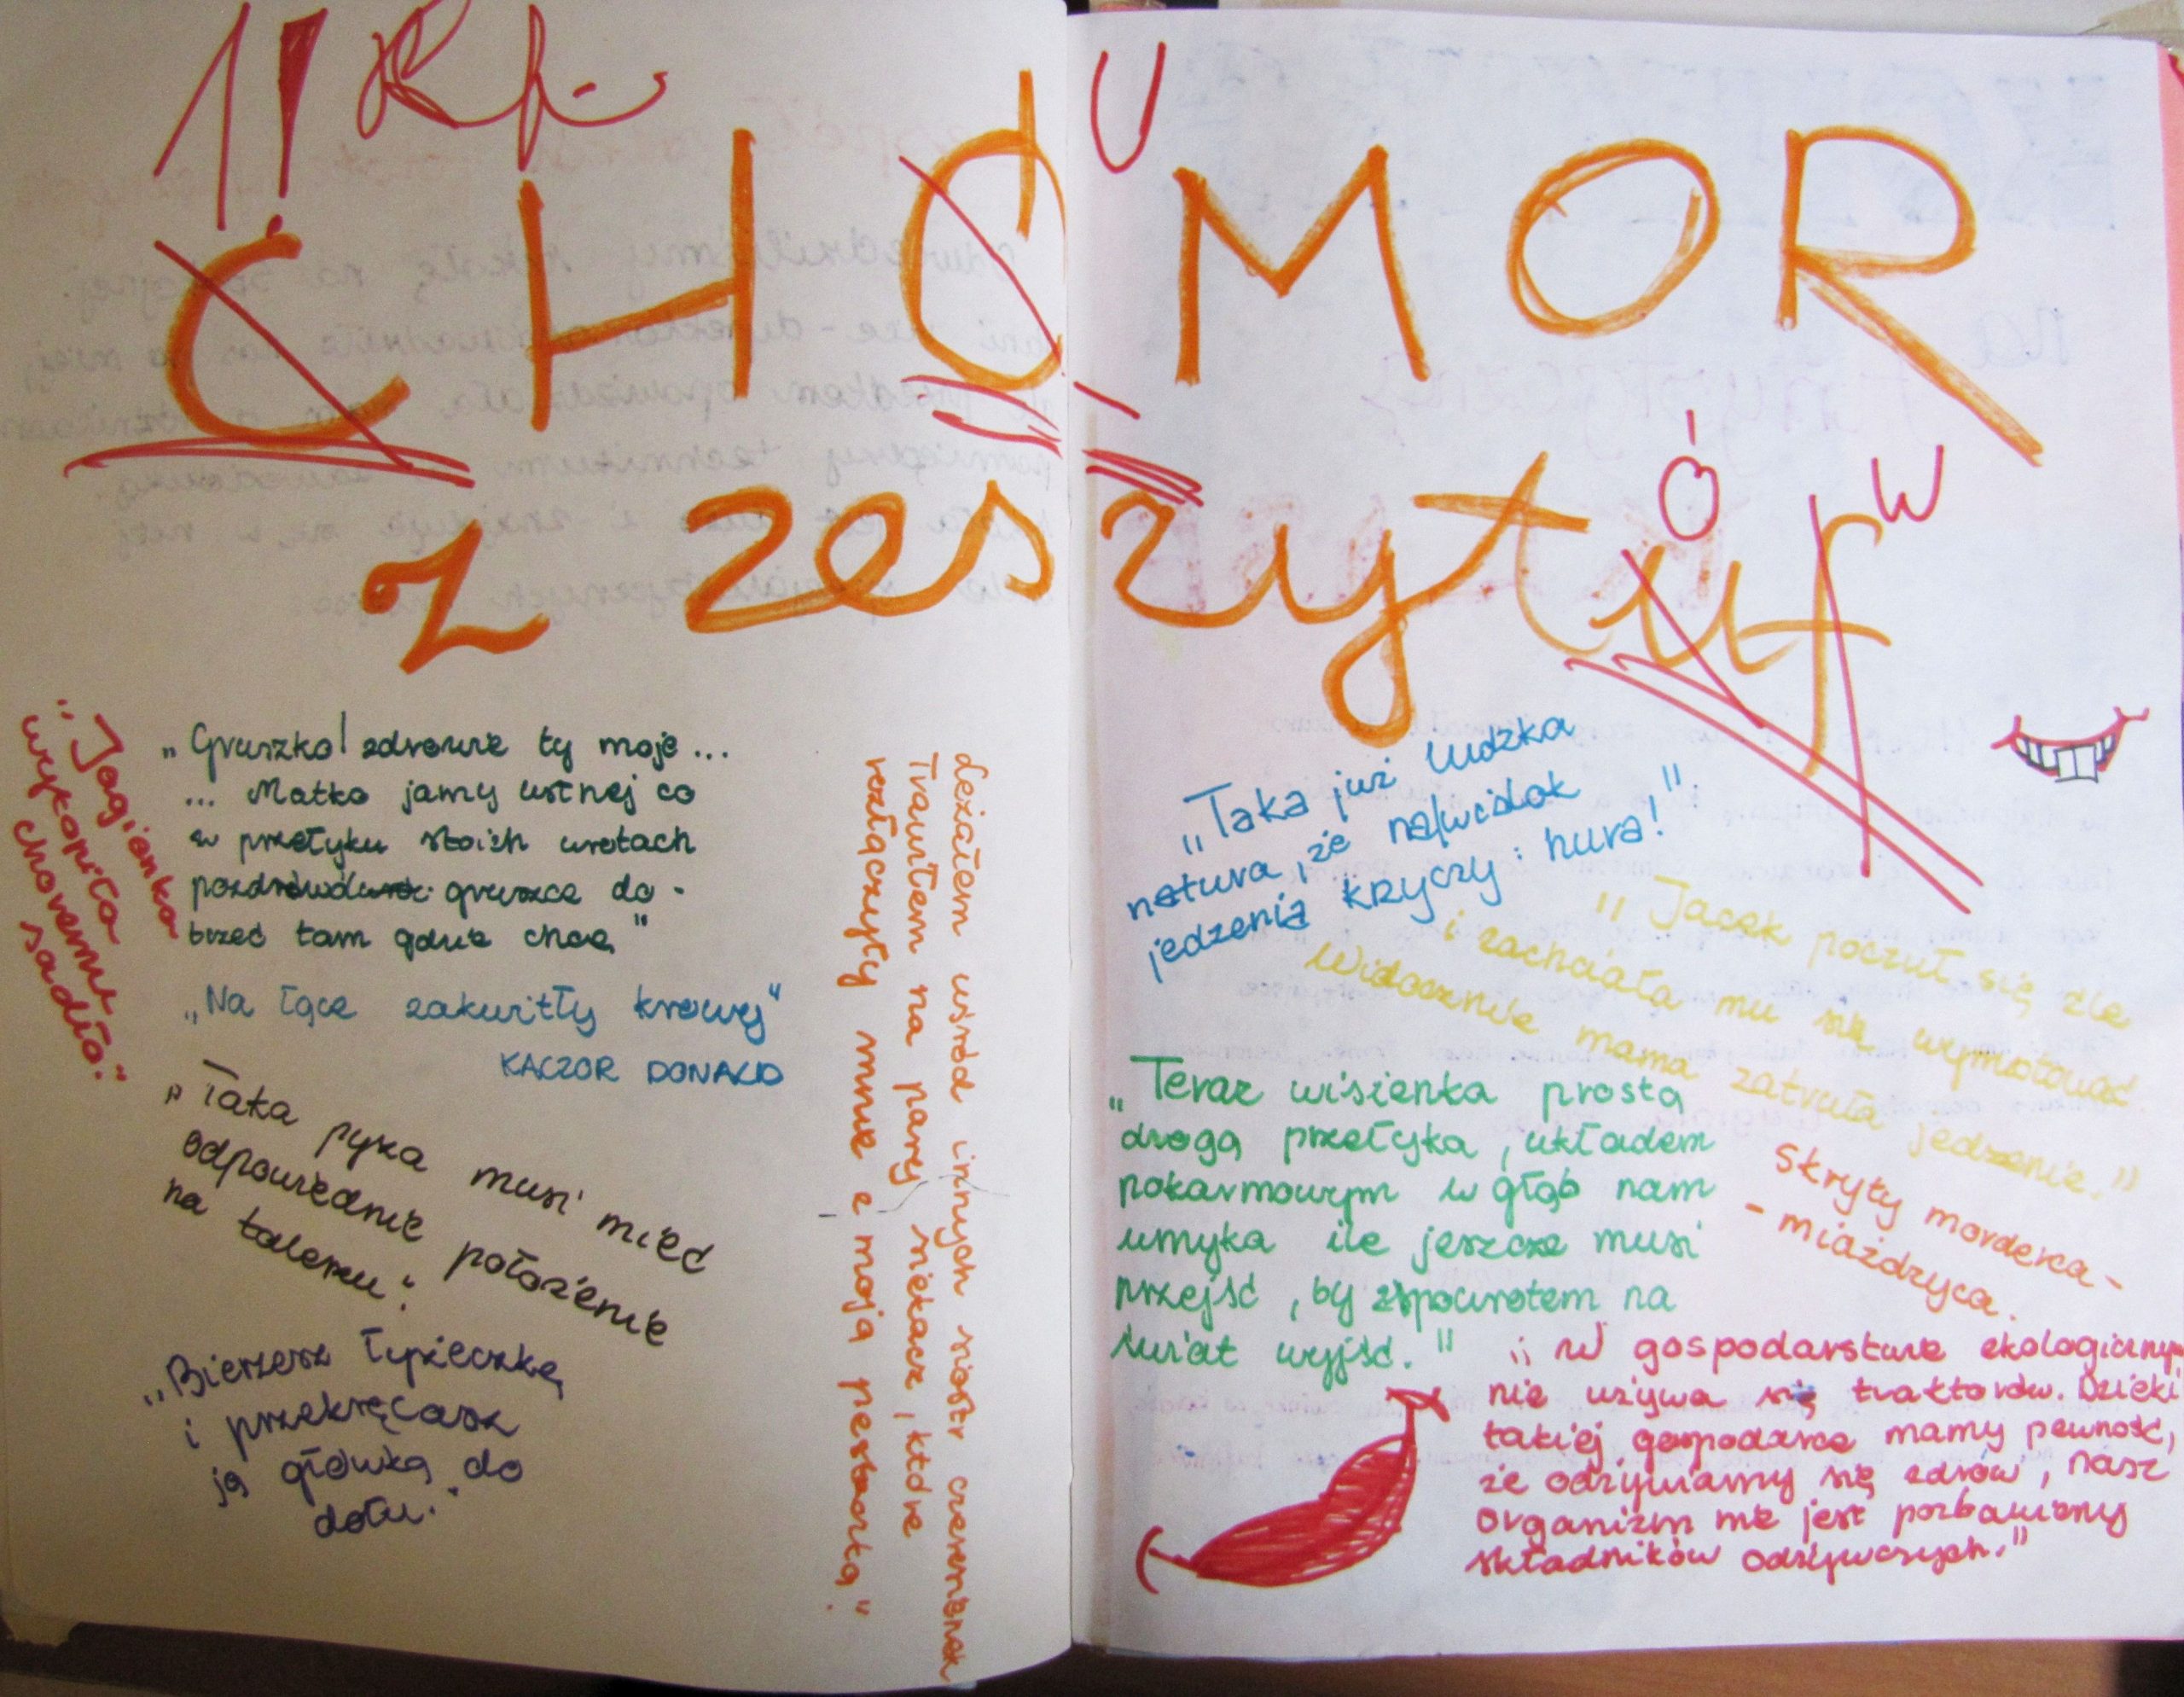 1! Rf.
U
CHÓMOR
ó w
z zeszytuf
„Jagienka
wykopiła
choremu
sadło."
„Gruszko! zdrowie ty moje...
... Matko jamy ustnej co
w przełyku stoish wrotach
gruszce do-
brzeć tam gdzie chce"
„Na łące zakwitły krowy"
KACZOR DONALD
„Taka pyza musi mieć
odpowiednie położenie
na talerzu".
„Bierzesz łyżeczkę
i przekręcasz
ją główką do
dołu."
Leżałem wśród innych siostr czereśnienek
Trawiłem na parej siekacz, które
rozłączyły mnie z moją pestką".
„Taka już ludzka
natura, że na widok
jedzenia krzyczy: hura!"
„Jacek poczuł się źle
i zachciała mu się wymiotować.
Widocznie mama zatruła jedzenie."
„Teraz wisienka prostą
drogą przełyka, układem
pokarmowym w głąb nam
umyka ile jeszcze musi
przejść, by spowrotem na
świat wyjść."
Skryty morderca -
- miażdżyca.
„W gospodarstwie ekologiczny
nie używa się traktorów. Dzięki
takiej gospodarce mamy pewność,
że odżywiamy się zdrow, nasz
organizm nie jest pozbawiony
składników odżywczych."